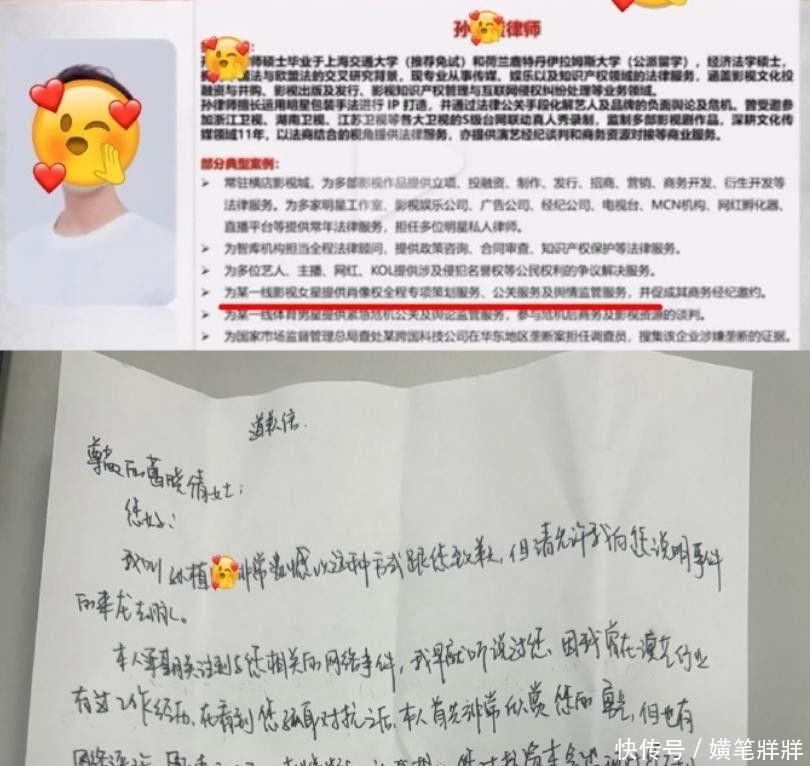 孙 律师
师硕士毕业于上海交通大学（推荐免试）和荷兰鹿特丹伊拉姆斯大学（公派留学），经济法学硕士，
法与欧盟法的交叉研究背景。现专业从事传媒、娱乐以及知识产权领域的法律服务，涵盖影视文化投
融资与并购、影视出版及发行、影视知识产权管理与互联网侵权纠纷处理等业务领域。
孙律师擅长运用明星包装手法进行 IP 打造，并通过法律公关手段化解艺人及品牌的负面舆论及危机。曾受邀参
加浙江卫视、湖南卫视、江苏卫视等各大卫视的S级台网联动真人秀录制，监制多部影视剧作品，深耕文化传
媒领域11年，以法商结合的视角提供法律服务，亦提供演艺经纪谈判和商务资源对接等商业服务。
部分典型案例：
➢ 常驻横店影视城，为多部影视作品提供立项、投融资、制作、发行、招商、营销、商务开发、衍生开发等
法律服务。为多家明星工作室、影视娱乐公司、广告公司、经纪公司、电视台、MCN机构、网红孵化器、
直播平台等提供常年法律服务，担任多位明星私人律师。
➢ 为智库机构担当全程法律顾问，提供政策咨询、合同审查、知识产权保护等法律服务。
➢ 为多位艺人、主播、网红、KOL提供涉及侵犯名誉权等公民权利的争议解决服务。
➢ 为某一线影视女星提供肖像权全程专项策划服务、公关服务及舆情监管服务，并促成其商务经纪邀约。
➢ 为某一线体育男星提供紧急危机公关及舆论监管服务，参与危机后商务及影视资源的谈判。
➢ 为国家市场监督管理总局查处某跨国科技公司在华东地区垄断案担任调查员，搜集该企业涉嫌垄断的证据。
道歉信.
尊敬的葛晓倩女士：
您好：
我叫孙植 非常遗憾以这种方式跟您致歉，但请允许我向您说明事件
的来龙去脉。
本人早期关注到与您相关的网络事件，我早就听说过您，因我曾在演艺行业
有过工作经历，在看到您 对抗之后，本人首先非常欣赏您的 ，但也有
快传号／横笔牂牂